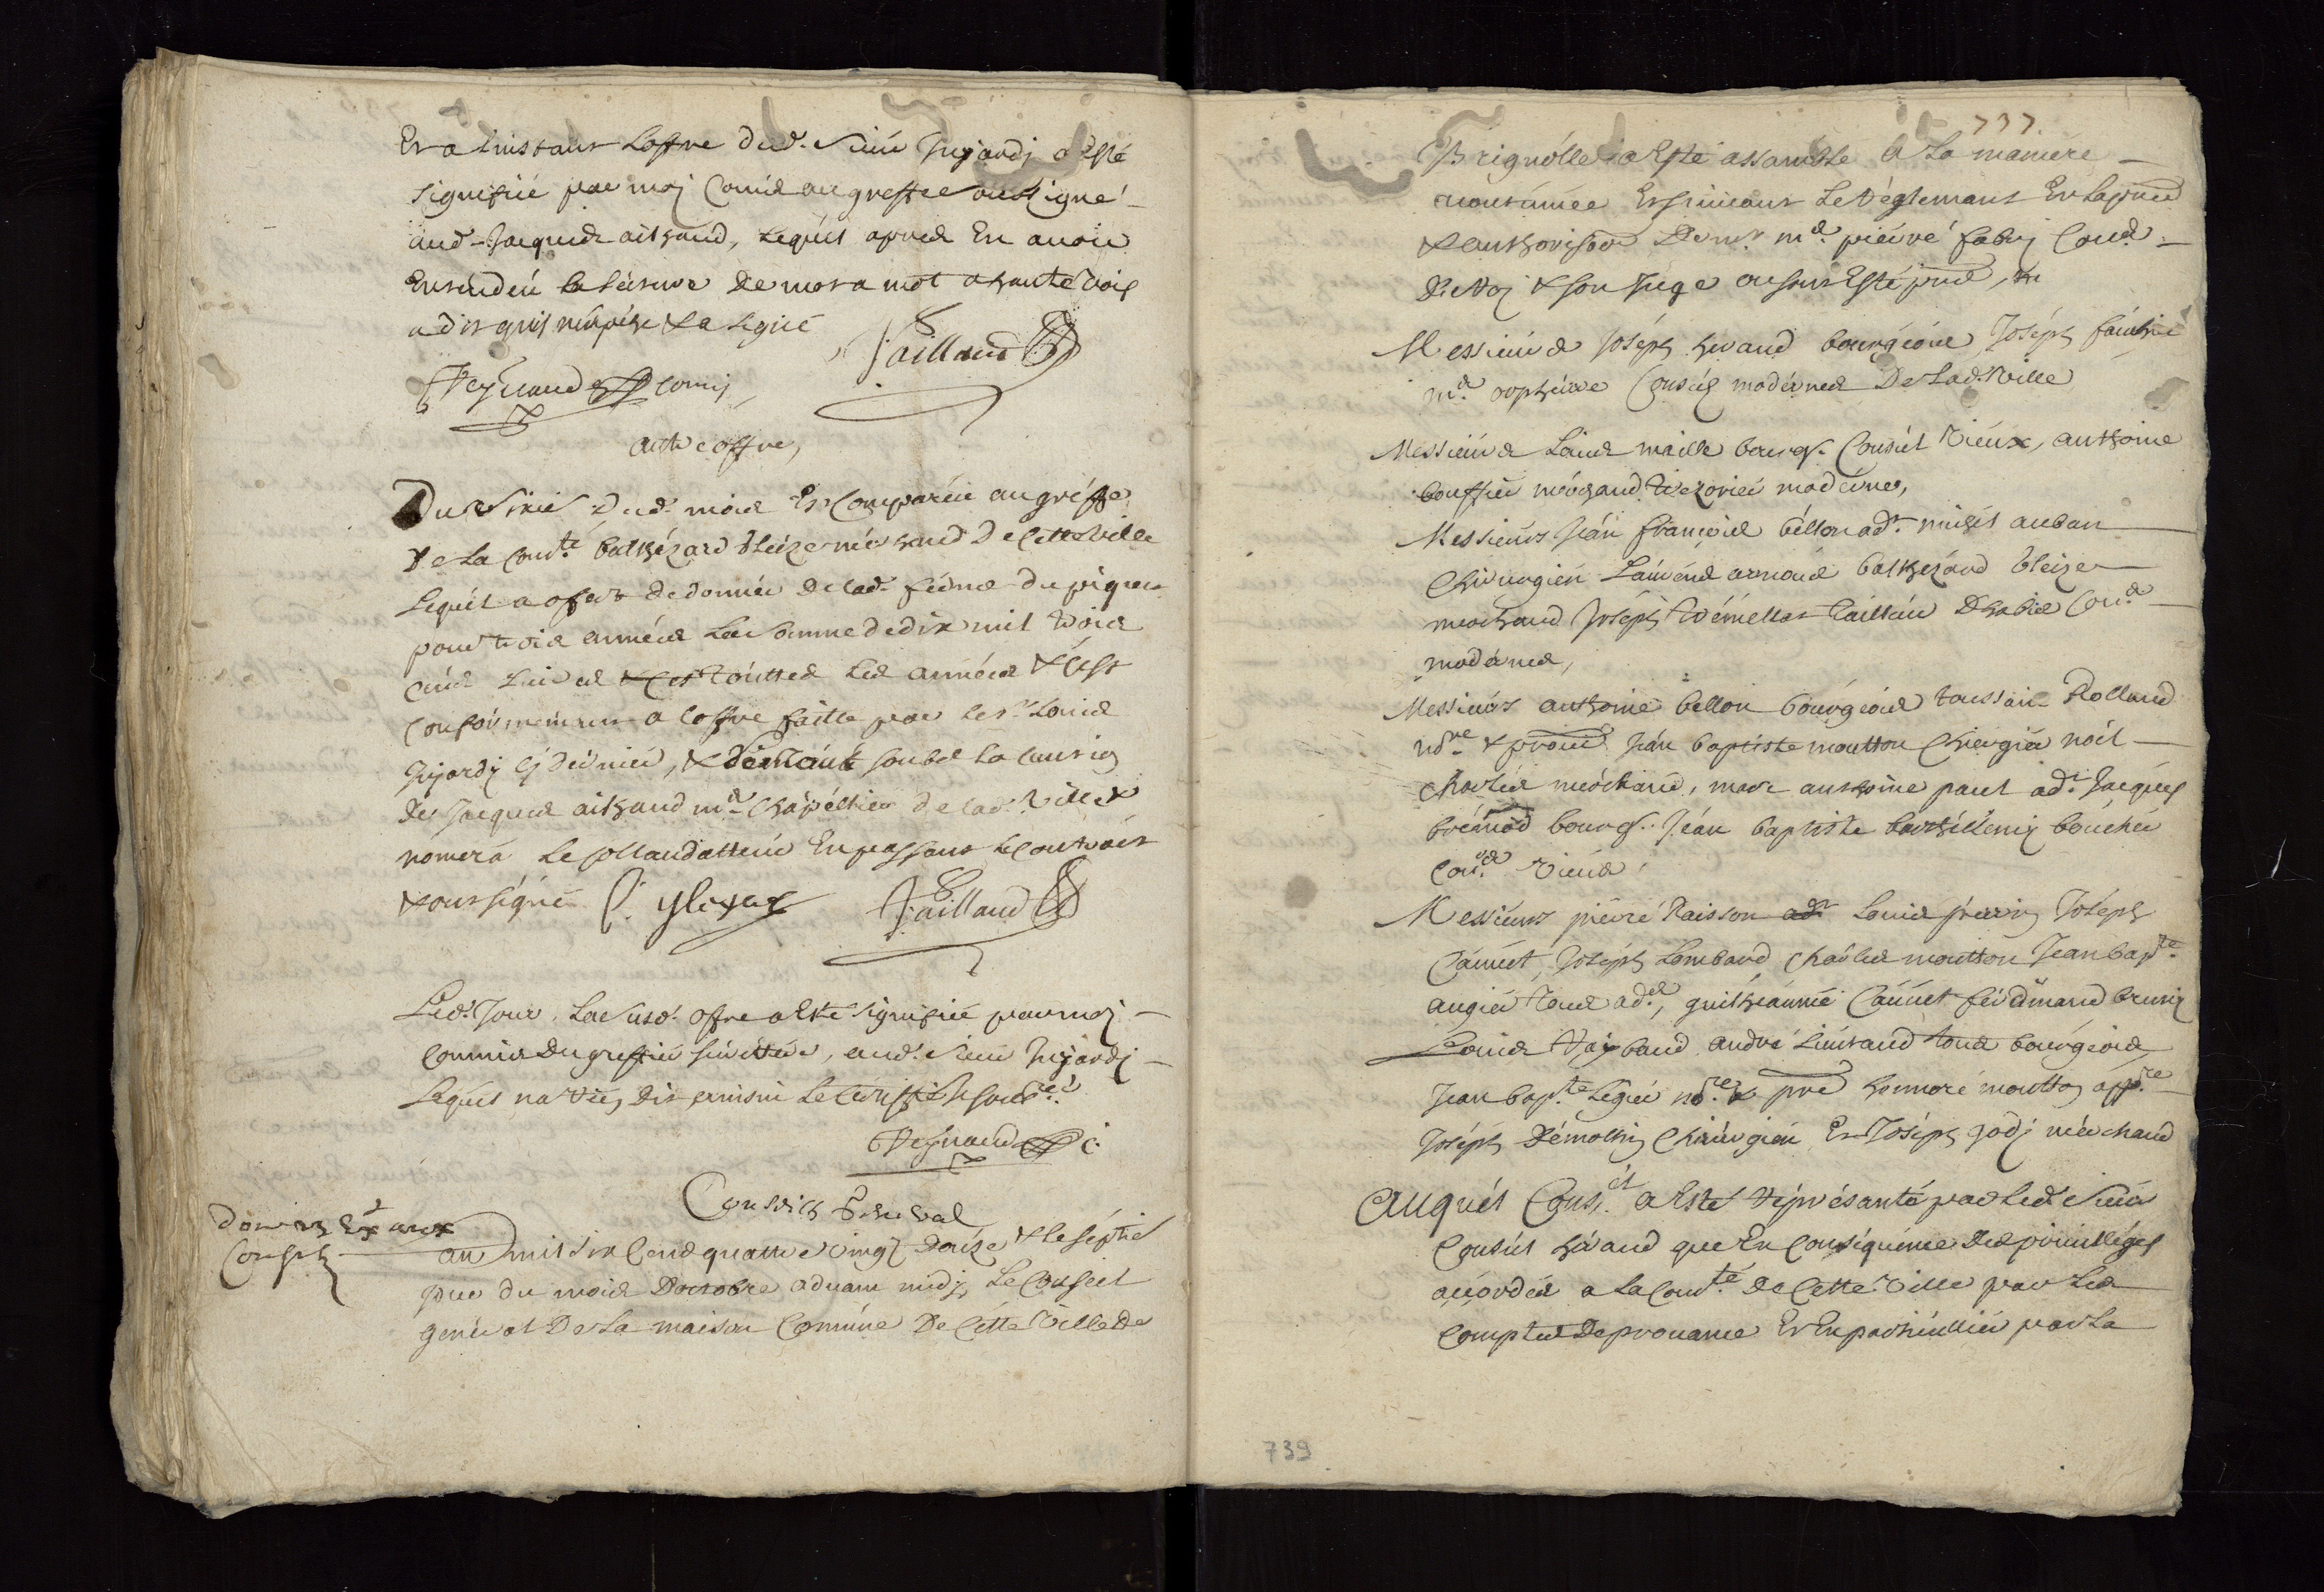 Et a linstant Loffre dud. Sieur Jujardy a esté
signifiée par moy Comis au greffe soubsigné
aud. Jacques aithaud, Lequel apres En auoir
Entendeu la lecture de mot a mot a haute voix
a dit quil & a signé
Jaillaud
Reynaud comis
autre offre,
Du Sixie dud. mois Est Comparéu au gréffe
De La Conté balthézard bleize mérchand De Cette Ville
Lequel a ofert de donner de lad. férme du piquet
pour trois années La somme de dix mil trois
Cens Liures touttes Les années & Cest
Conformement a loffre faitte par le sr Louis
Jujardy Cy dernier, & soubs la Caution
de Jacques aithaud md Chapéllier de lad. Ville &
nomera Le Collaudatteur En passant le Contract
& ont signé J. ybleyze Jaillaud
Led. Jour, La Susd. offre a Esté signifiée par moy
Commis du greffier , aud. Sieur Jujardy
Lequel na Rien dit
Reynaud c.
Conseil General
Conseil
an mil Six Cens quattre vingt douze & le séptie
jour du mois Doctobre aduant midy, Le Conseil
genéral De La maison Comúne De Cétte Ville De
737
Brignólle a Esté assamblé a La maniere
acoutumée Ensuiuant Le Réglemant En la pnce
& authorisaon De mr. me. piérré fabry Coner
Du Roy & son Juge ou sont Esté pnts,
Messieurs Joséph hiraud bourgéois Joséph
md. Consuls modérnes De Lad. Ville
Messieurs Louis maille bourgs. Consul Vieux, anthoine
bouffier mérchand trezorier modérne,
Messieurs Jéan françois béllon adt. michél auban
Chirurgién Laurens arnoux balthézard bleize
merchand Joséph trémellat tailleur Dhabis Conrs
modérnes,
Messieurs anthoine béllon bourgéois toussain Rolland
nore & procur Jéan baptiste moutton Chirurgién noél
Charles mérchand, marc anthoine paul adt. Jacques
brémond bourgs. Jéan baptiste barthéllemy bouchér
Conrs Vieux,
Messieurs piérré Raisson Louis Joséph
Cánnet, Joséph Lombard, Charles moutton Jean bapte
augier tous adts, guilheaumé Cánnet férdinand brunj
Louis Raybaud, andré Lieutaud tous bourgéois,
Jean bapte Légier nore & pr honnoré moutton appre
Joséph Démollin Chirurgién Et Joséph jody mérchand
Auquél Consel a Esté Répréseanté par Led. Sieur
Consul hiraud que En Conséquence Des priuilléges
accordés a La Conté De Cétte Ville par Les
Comptes De prouance Et En particullier par La
739